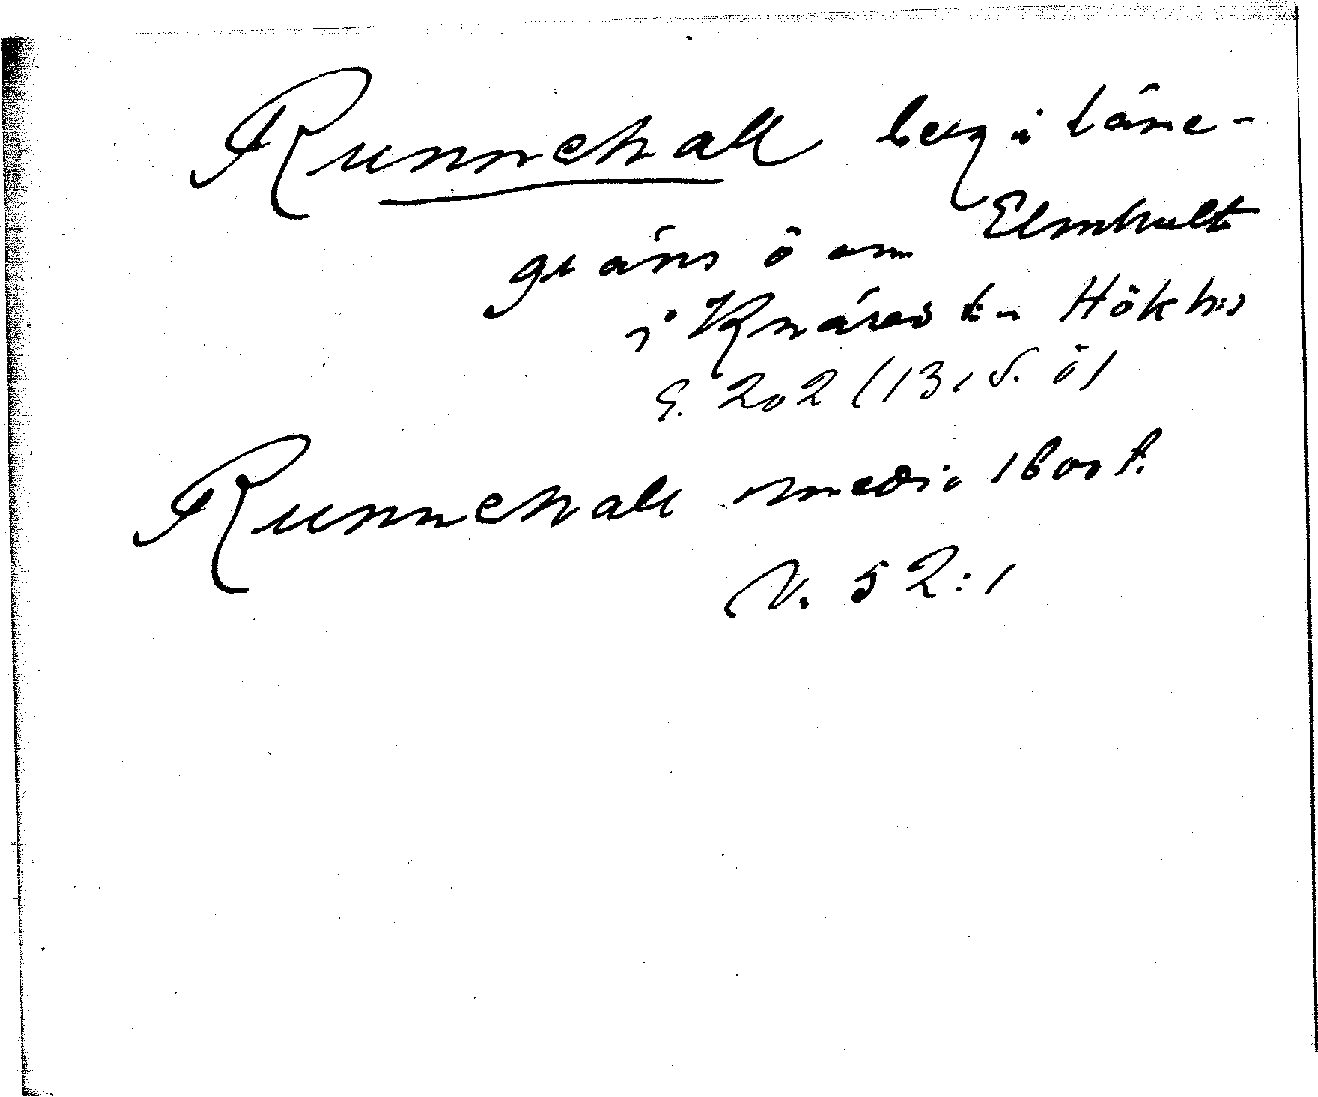 Runnehall berg i läne-
gräns ö om Elmhult
i Knäreds sn Höks hd
G. 202 (131 S. ö)
Runnehall medio 1600 t.
N. 52:1